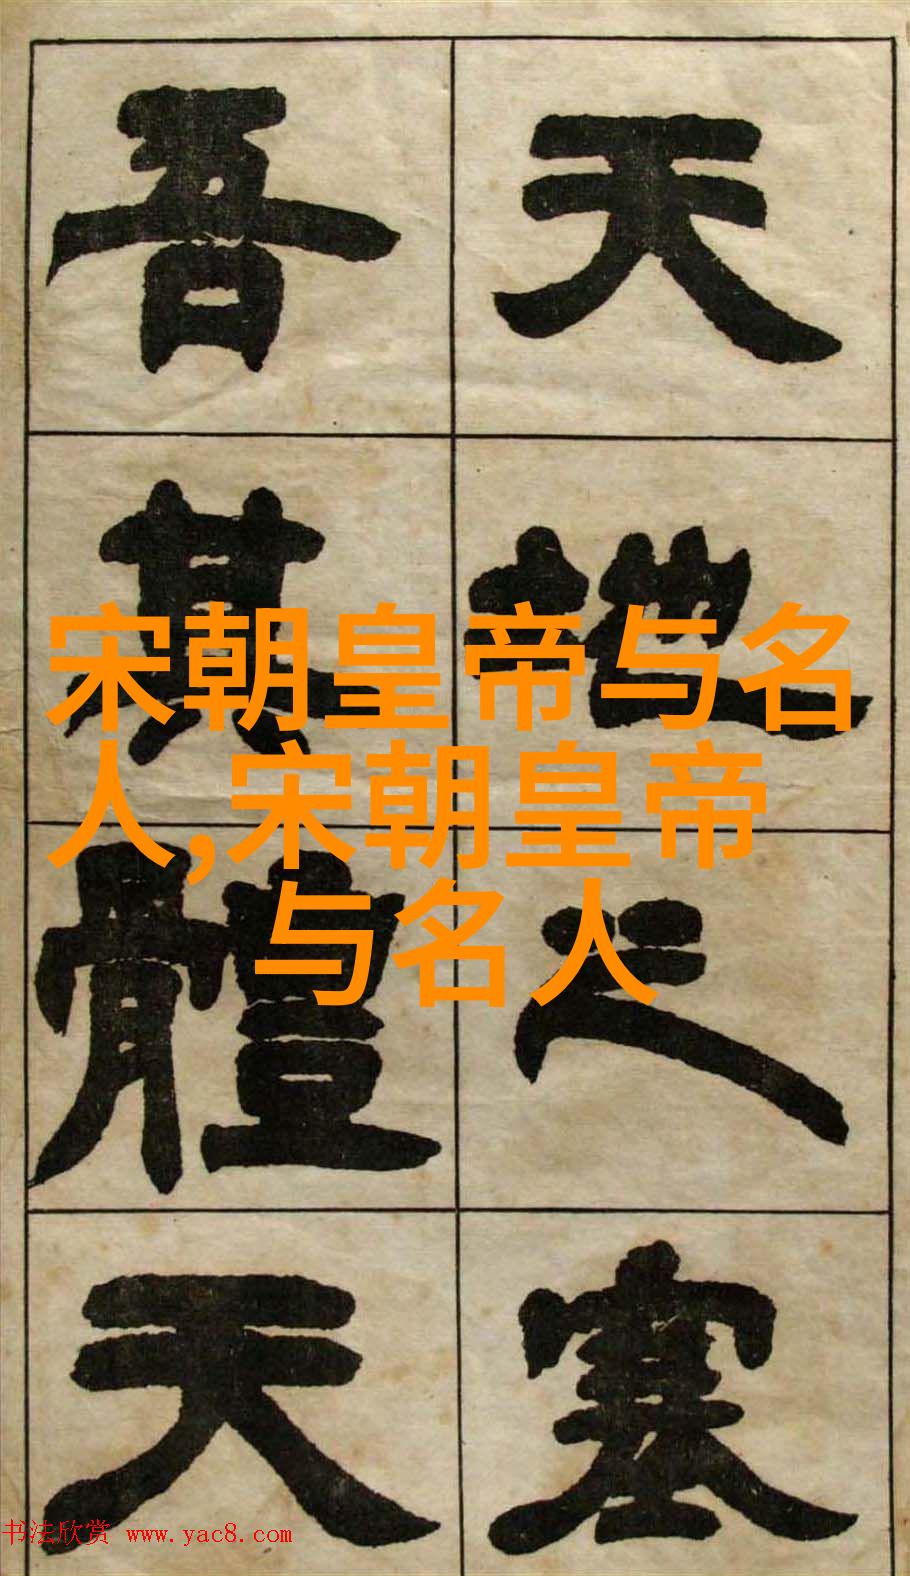 天地之塞
吾其體天
宋朝皇帝与名
人,宋朝皇帝
与名人
书法欣赏 www.yac8.com